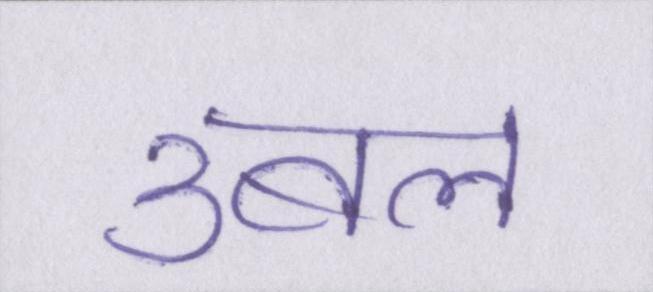 उबल